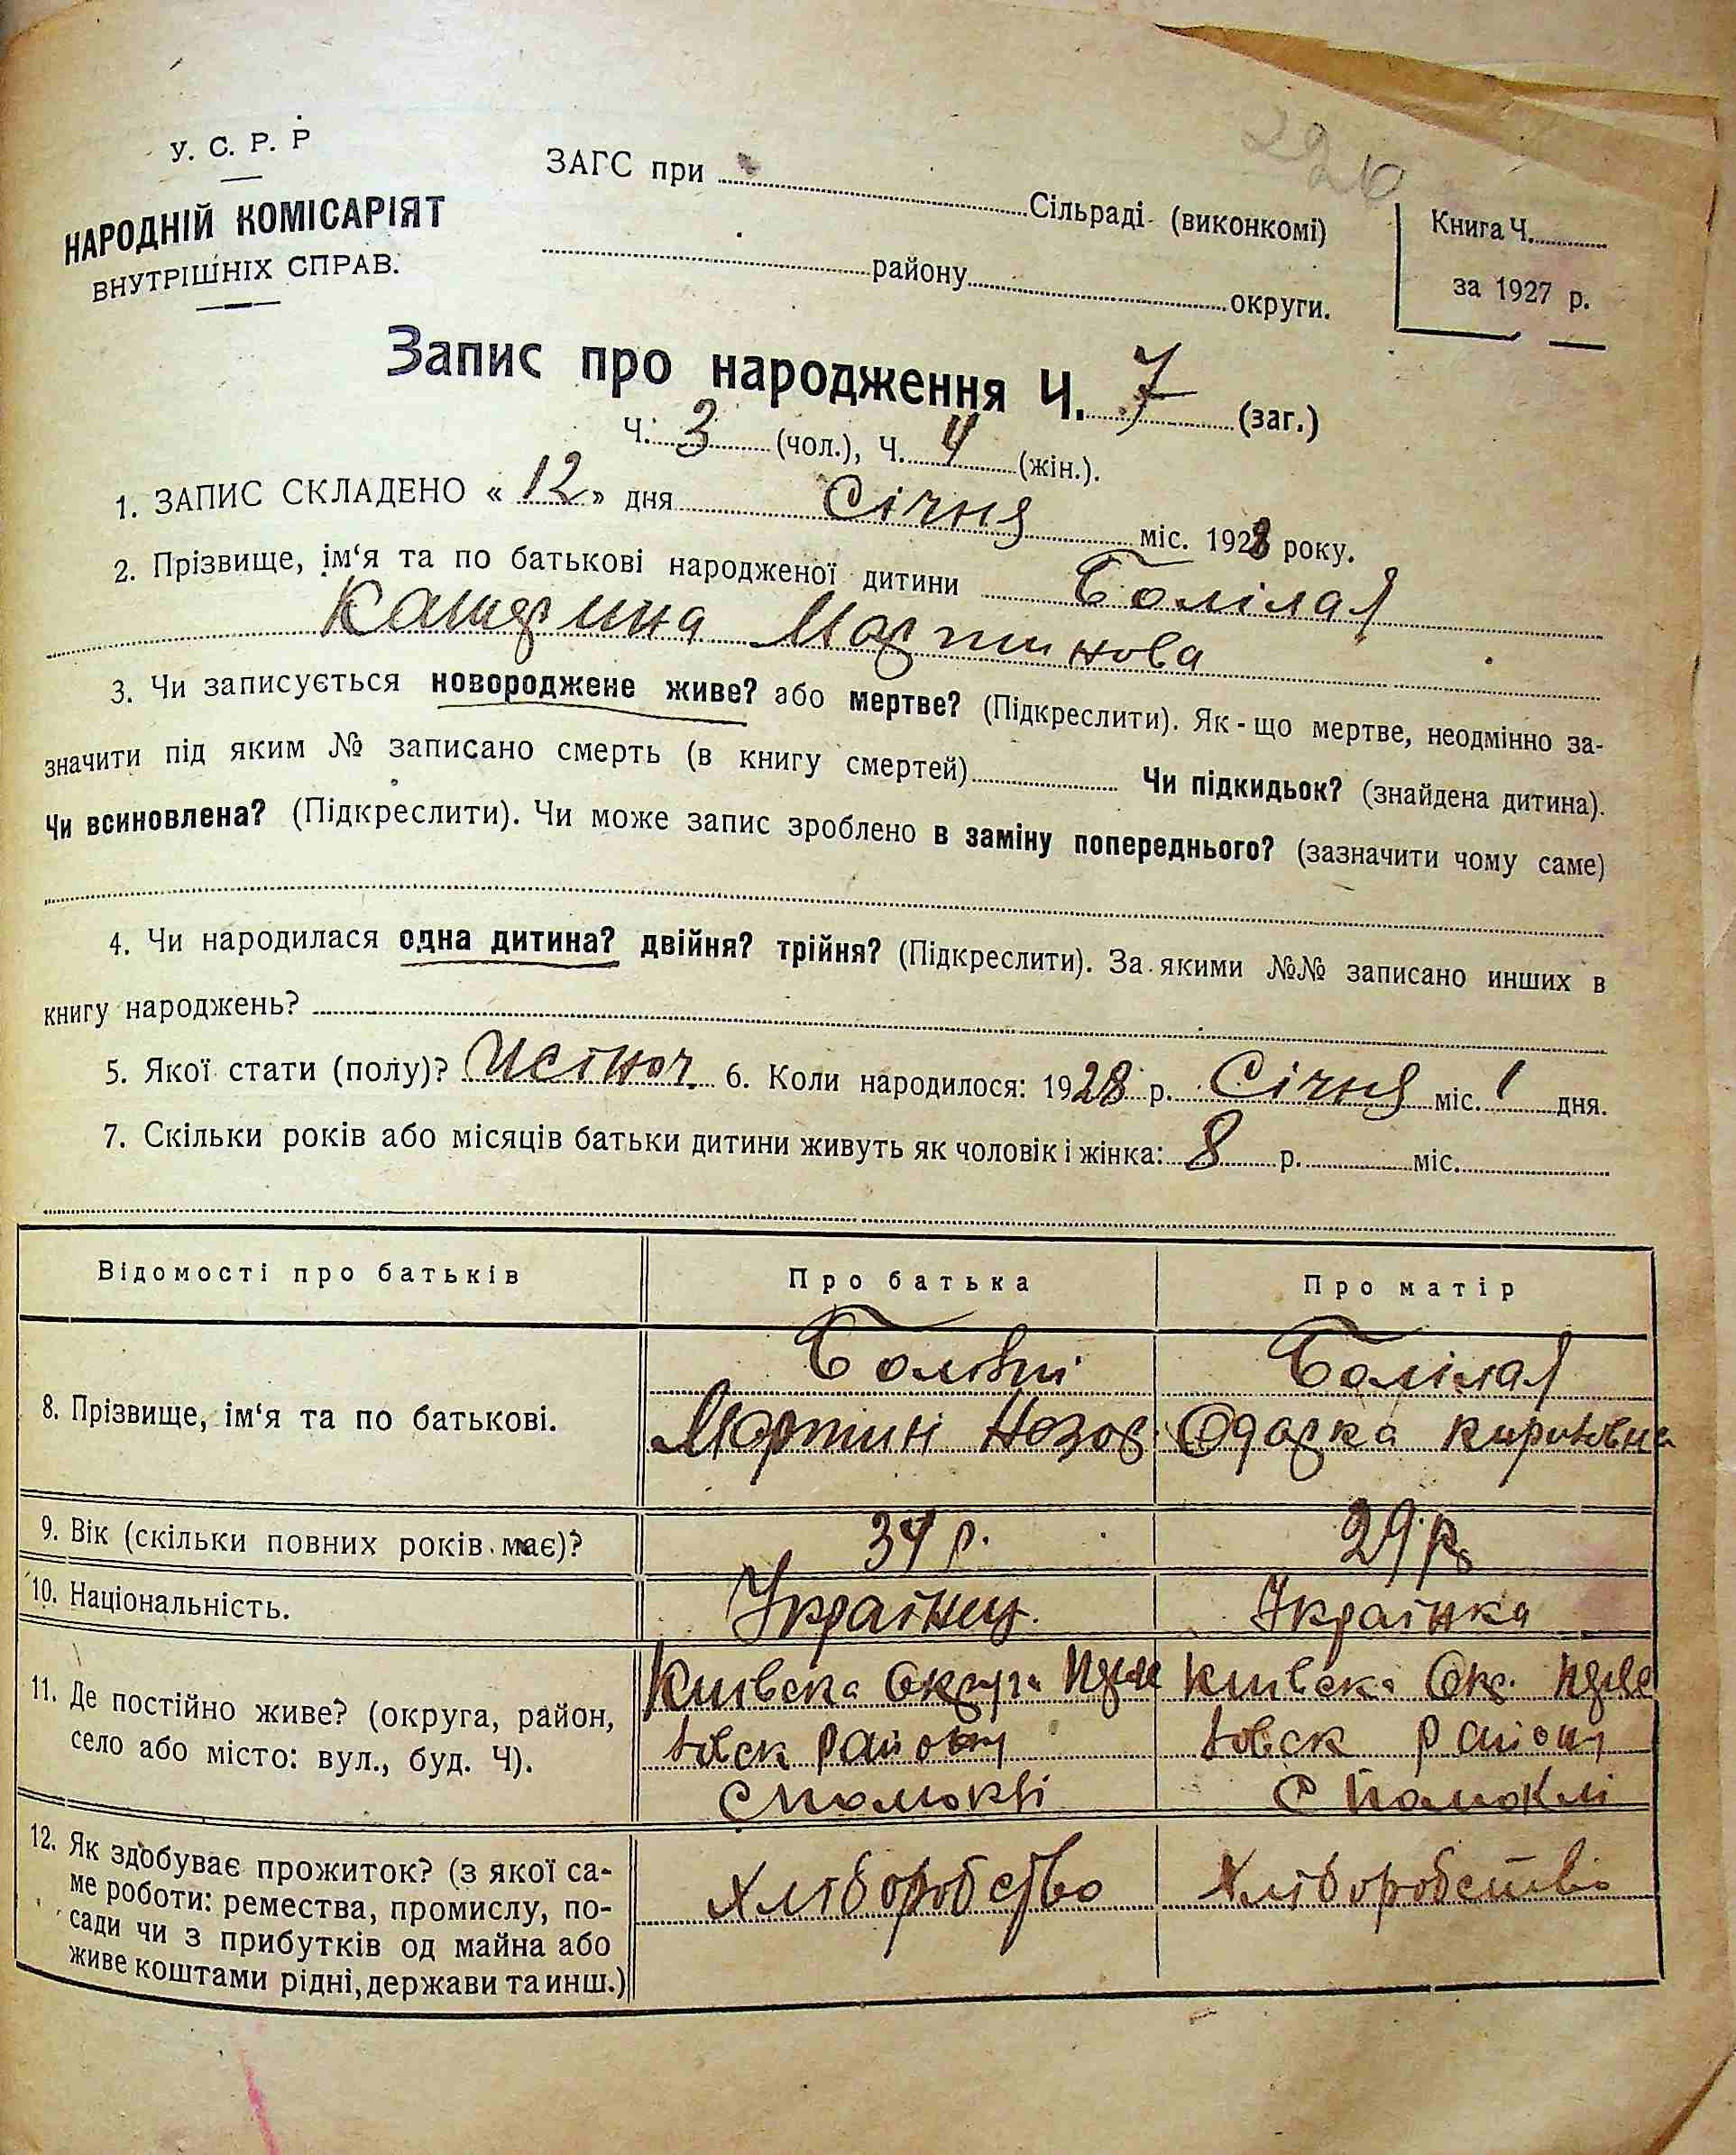 220
У. С. Р. Р
НАРОДНІЙ КОМІСАРІЯТ
ВНУТРІШНІХ СПРАВ.
ЗАГС при Сільраді (виконкомі)
району округи.
Книга Ч.
за 1927 р.
Запис про народження Ч. 7 (заг.)
Ч. 3 (чол.), Ч. 4 (жін.).
1. ЗАПИС СКЛАДЕНО « 12 » дня Січня міс. 1928 року.
2. Прізвище, ім‘я та по батькові народженої дитини
Катерина Мартинова
3. Чи записується новороджене живе? або мертве? (Підкреслити). Як - що мертве, неодмінно за-
значити під яким № записано смерть (в книгу смертей) Чи підкидьок? (знайдена дитина).
Чи всиновлена? (Підкреслити). Чи може запис зроблено в заміну попереднього? (зазначити чому саме)
4. Чи народилася одна дитина? двійня? трійня? (Підкреслити). За якими №№ записано инших в
книгу народжень?
5. Якої стати (полу)? 6. Коли народилося: 1928 р. Січня міс. 1 дня.
7. Скільки років або місяців батьки дитини живуть як чоловік і жінка: 8 р. міс.
Відомості про батьків Про батька Про матір
8. Прізвище, ім‘я та по батькові.
Мартин Назар Одарка
9. Вік (скільки повних років має)? 34 р. 29 р
10. Національність. Українец. Українка
11. Де постійно живе? (округа, район,
село або місто: вул., буд. Ч).
Київска Округа Київска Окр.
район району
С Помоклі
12. Як здобуває прожиток? (з якої са-
ме роботи: ремества, промислу, по-
сади чи з прибутків од майна або
живе коштами рідні, держави та инш.)
Хліборобство Хліборобство